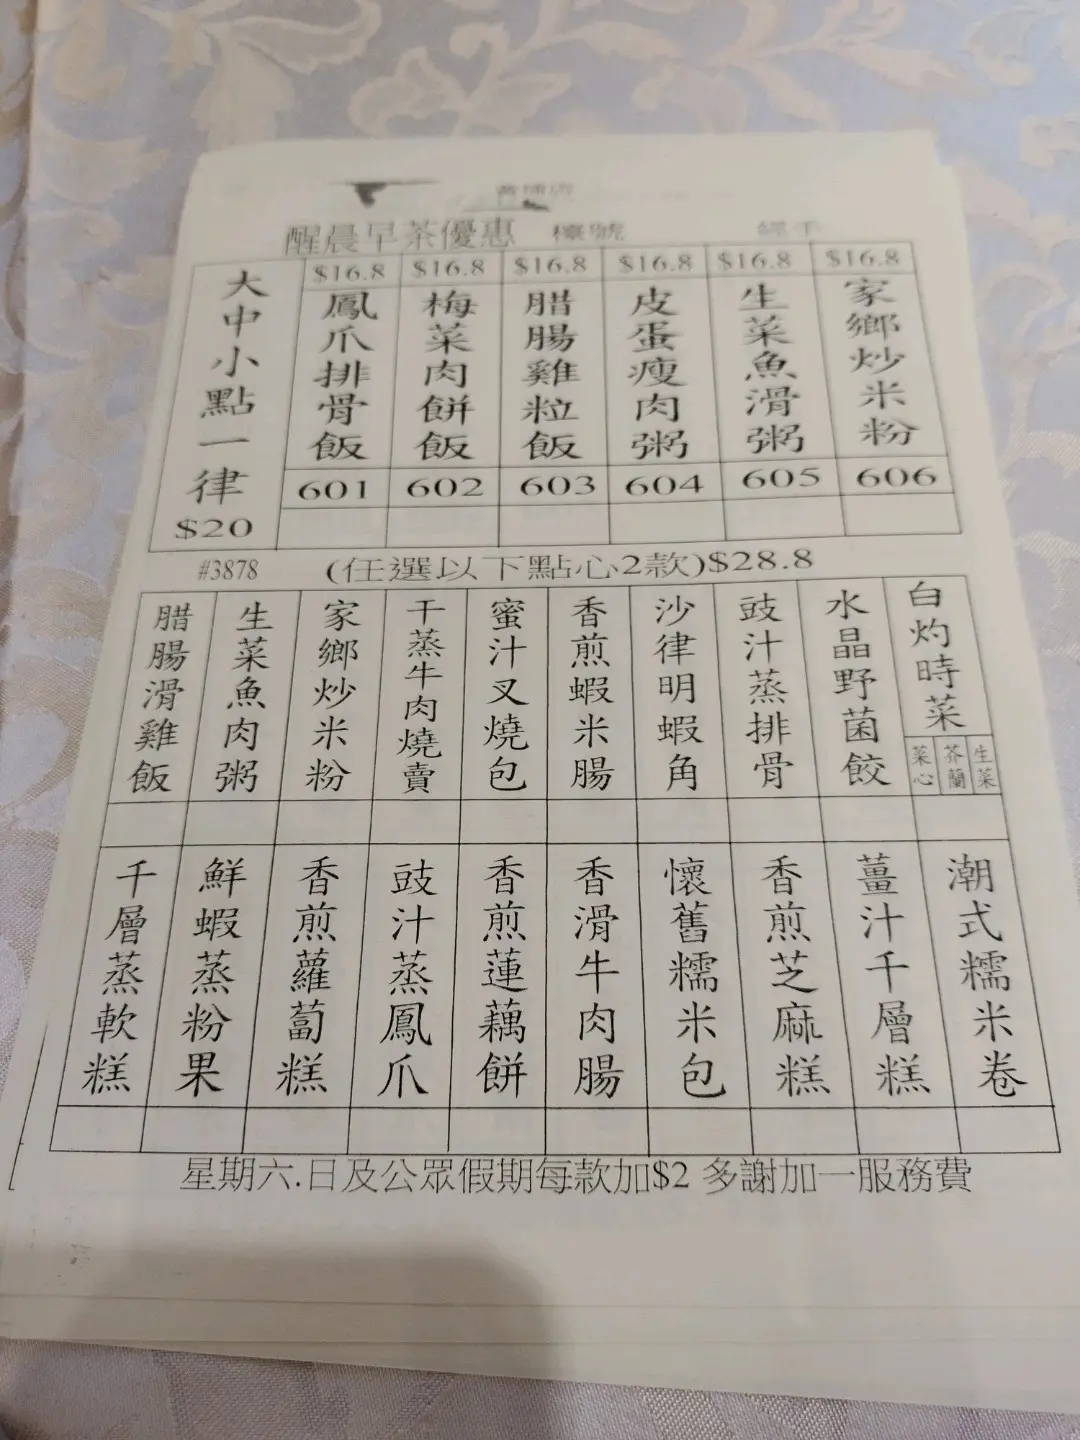 黃埔店
醒晨早茶優惠 檯號 經手
大中小點一律$20
$16.8 $16.8 $16.8 $16.8 $16.8 $16.8
鳳爪排骨飯
梅菜肉餅飯
腊腸雞粒飯
皮蛋瘦肉粥
生菜魚滑粥
家鄉炒米粉
601 602 603 604 605 606
#3878 (任選以下點心2款)$28.8
腊腸滑雞飯
生菜魚肉粥
家鄉炒米粉
干蒸牛肉燒賣
蜜汁叉燒包
香煎蝦米腸
沙律明蝦角
豉汁蒸排骨
水晶野菌餃
白灼時菜
菜心 芥蘭 生菜
千層蒸軟糕
鮮蝦蒸粉果
香煎蘿蔔糕
豉汁蒸鳳爪
香煎蓮藕餅
香滑牛肉腸
懷舊糯米包
香煎芝麻糕
薑汁千層糕
潮式糯米卷
星期六.日及公眾假期每款加$2 多謝加一服務費